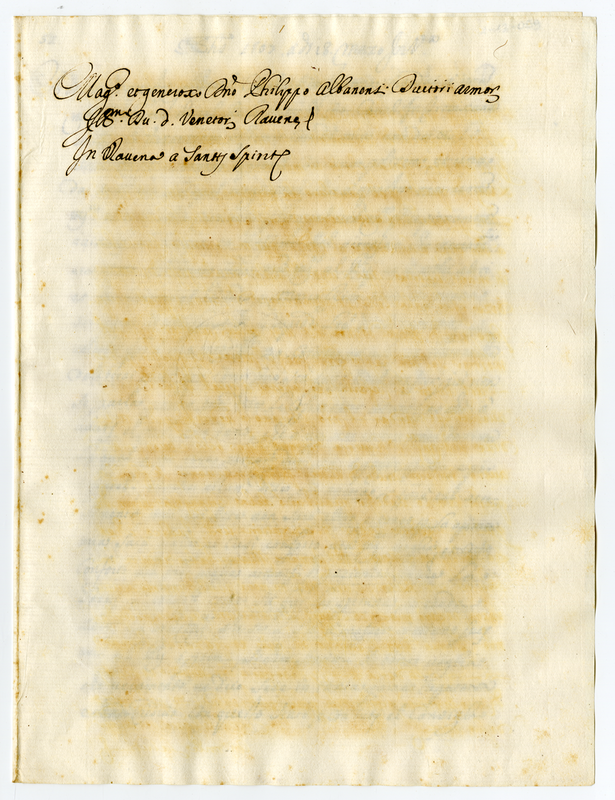 Mag.co et generoso Dno Philippo Albanensi Ductori armor
Ill.mi Du. d. Venetor Ravene
In Ravena a Santi Spirit